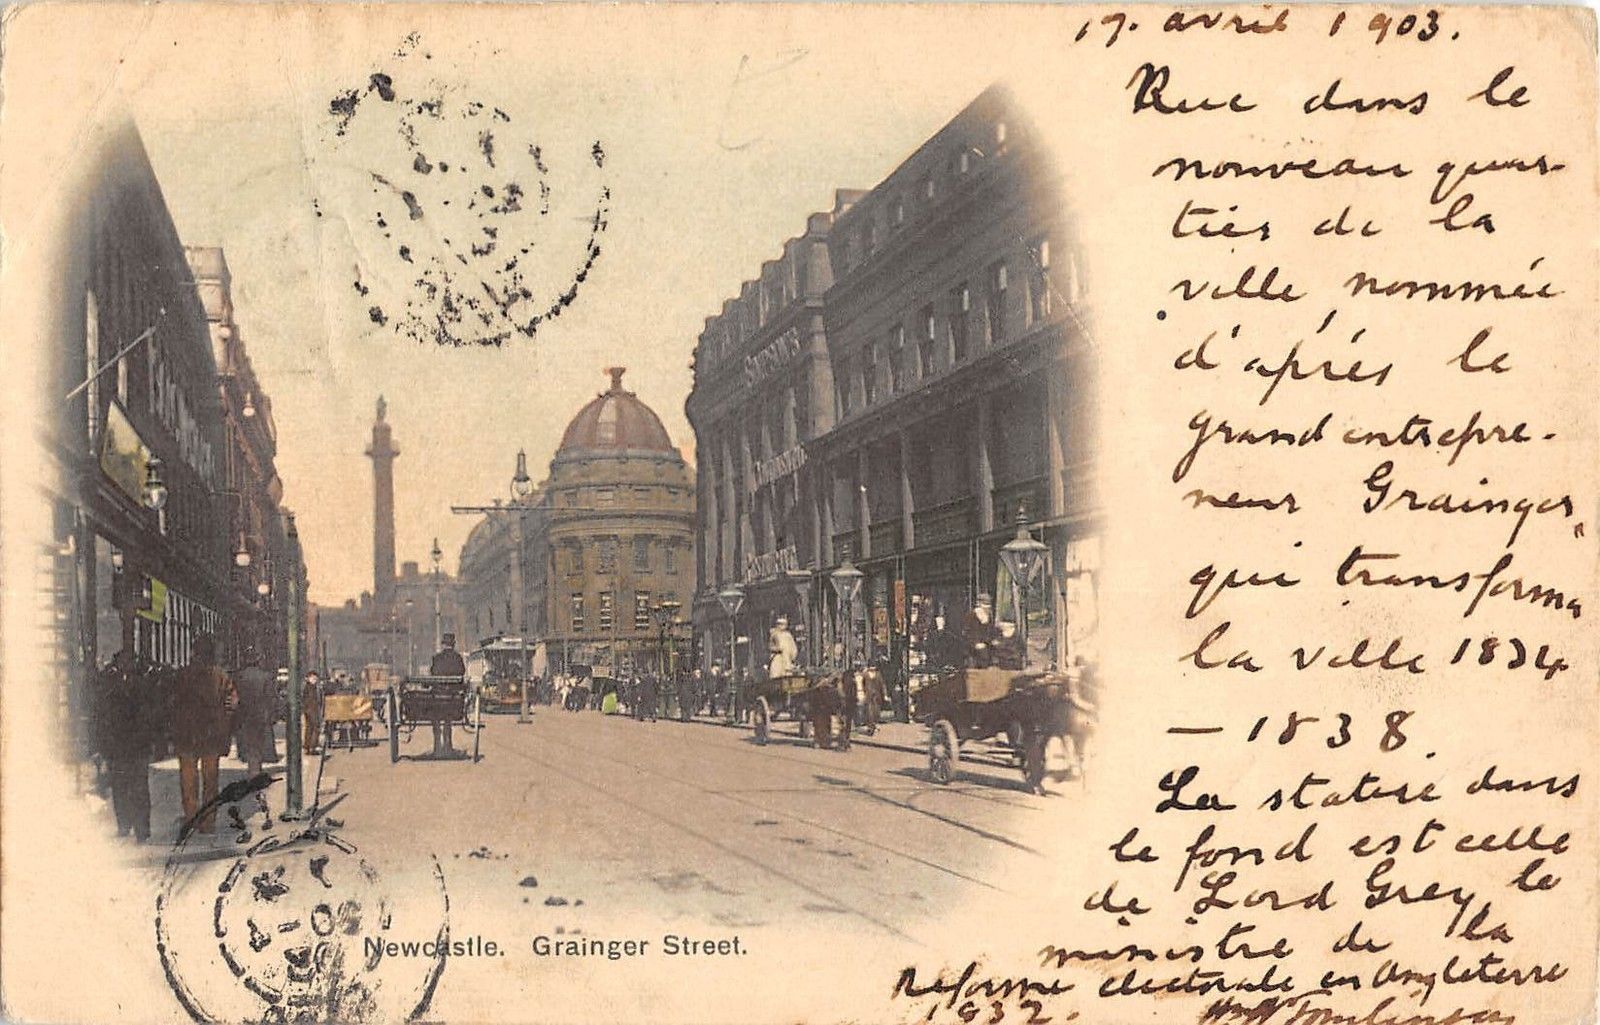 17. avril 1903.
Rue dans le
nouveau quar-
tier de la
ville, nommée
d'après le
grand entrepre-
neur Grainger,
qui transforma
la ville 1834
— 1838.
La statue dans
le fond est celle
de Lord Grey, le
ministre de la
Reforme electorale en Angleterre
1832. Tomlinson
SIMPSON'S
Newcastle. Grainger Street.